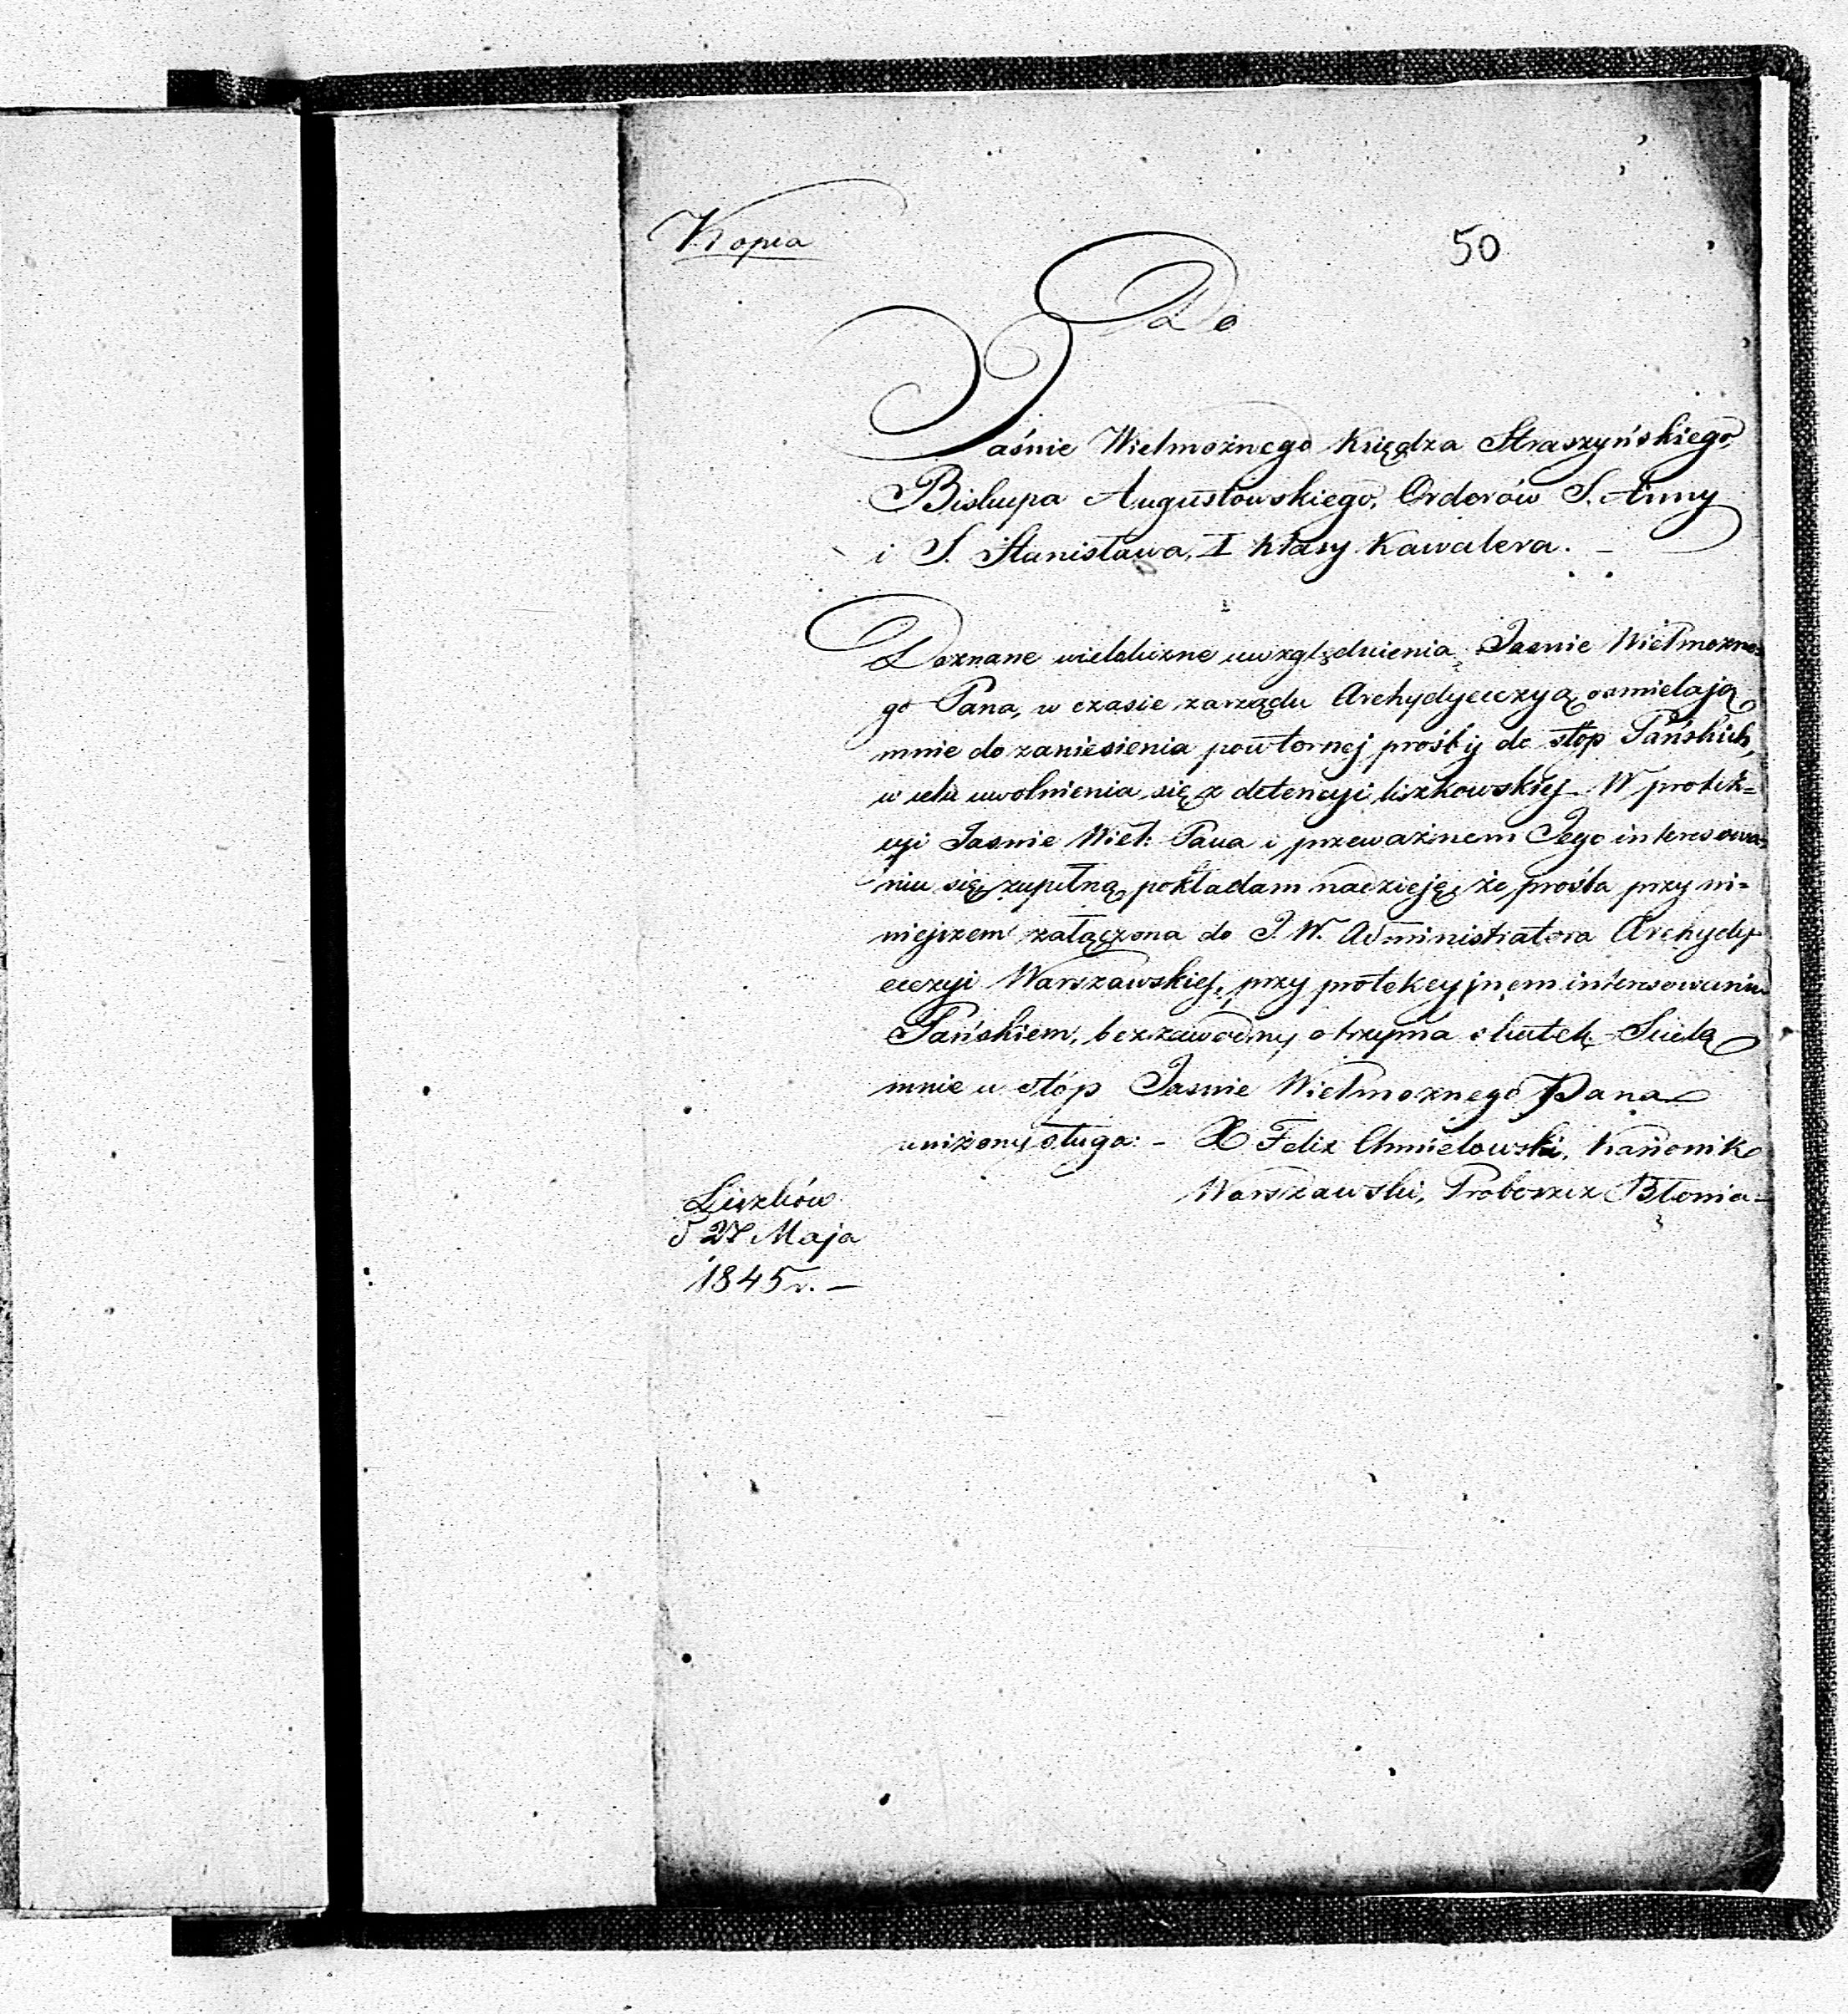 Kopia
50
Do
Jaśnie Wielmożnego Księdza Straszyńskiego,
Biskupa Augustowskiego, Orderów S. Anny
i S. Stanisława, I klasy Kawalera. –
Doznane wieloliczne uwzględnienia Jasnie Wielmożne=
go Pana, w czasie zarządu Archydyecezyą osmielają
mnie do zaniesienia powtornej prośby do stóp Pańskich,
w celu uwolnienia się z detencyi liszkowskiej – W protek=
cyi Jasnie Wiel: Pana i przeważnem Jego interesowa=
niu się zupełną pokładam nadzieję że prośba przy ni=
niejszem załączona do J. W. Administratora Archydy=
ecezyi Warszawskiej, przy protekcyjnem interesowaniu
Pańskiem, bezzawodny otrzyma skutek – Ściela
mnie u stóp Jasnie Wielmoznego Pana
uniżony sługa: – X Felix Chmielowski, Kanonik
Warszawski, Proboszcz Błonia –
Liszków
d 27 Maja
1845 r. –